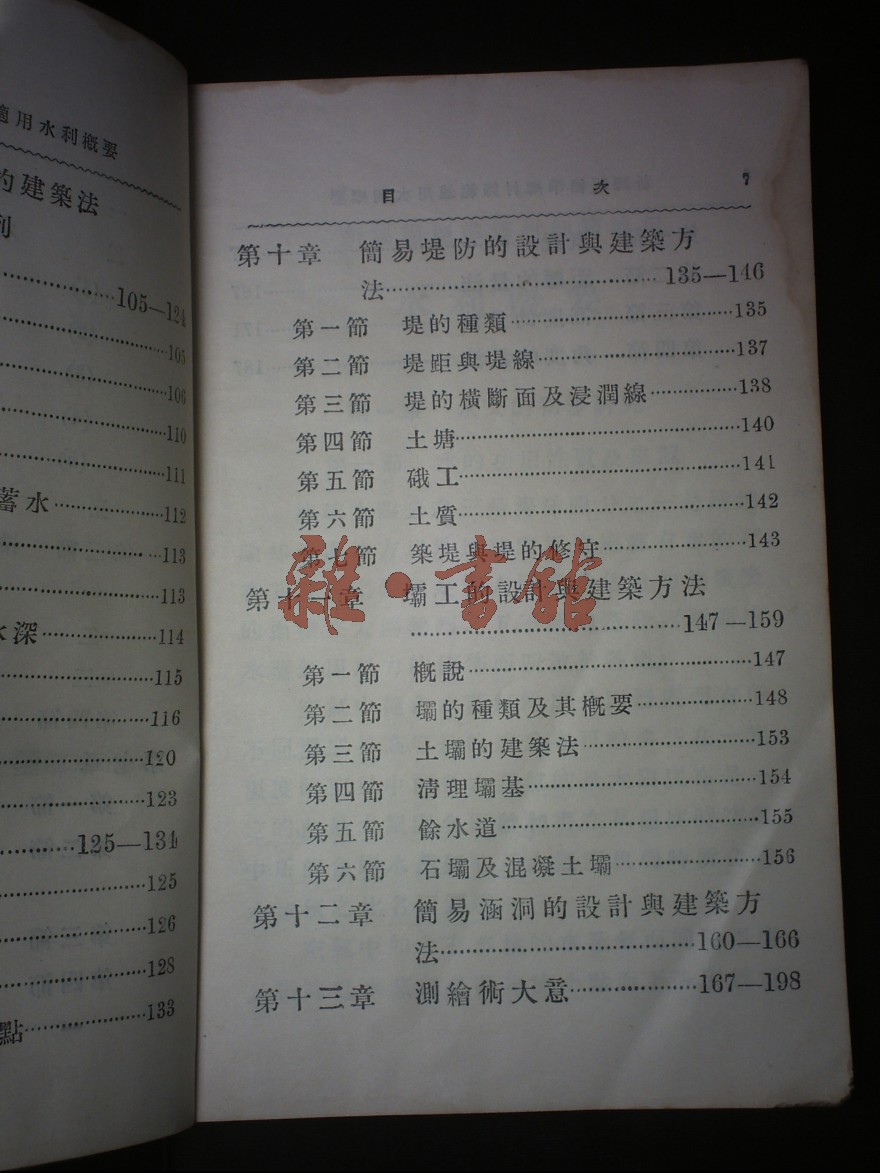 適用水利概要
的建築法
105—124
105
106
110
111
蓄水 112
113
113
水深 114
115
116
120
123
125—134
125
126
128
點 133
目次 7
第十章 簡易堤防的設計與建築方
法 135—146
第一節 堤的種類 135
第二節 堤距與堤線 137
第三節 堤的橫斷面及浸潤線 138
第四節 土塘 140
第五節 硪工 141
第六節 土質 142
第七節 築堤與堤的修守 143
第十一章 壩工的設計與建築方法
147—159
第一節 概說 147
第二節 壩的種類及其概要 148
第三節 土壩的建築法 153
第四節 淸理壩基 154
第五節 餘水道 155
第六節 石壩及混凝土壩 156
第十二章 簡易涵洞的設計與建築方
法 160—166
第十三章 測繪術大意 167—198
雜·書館